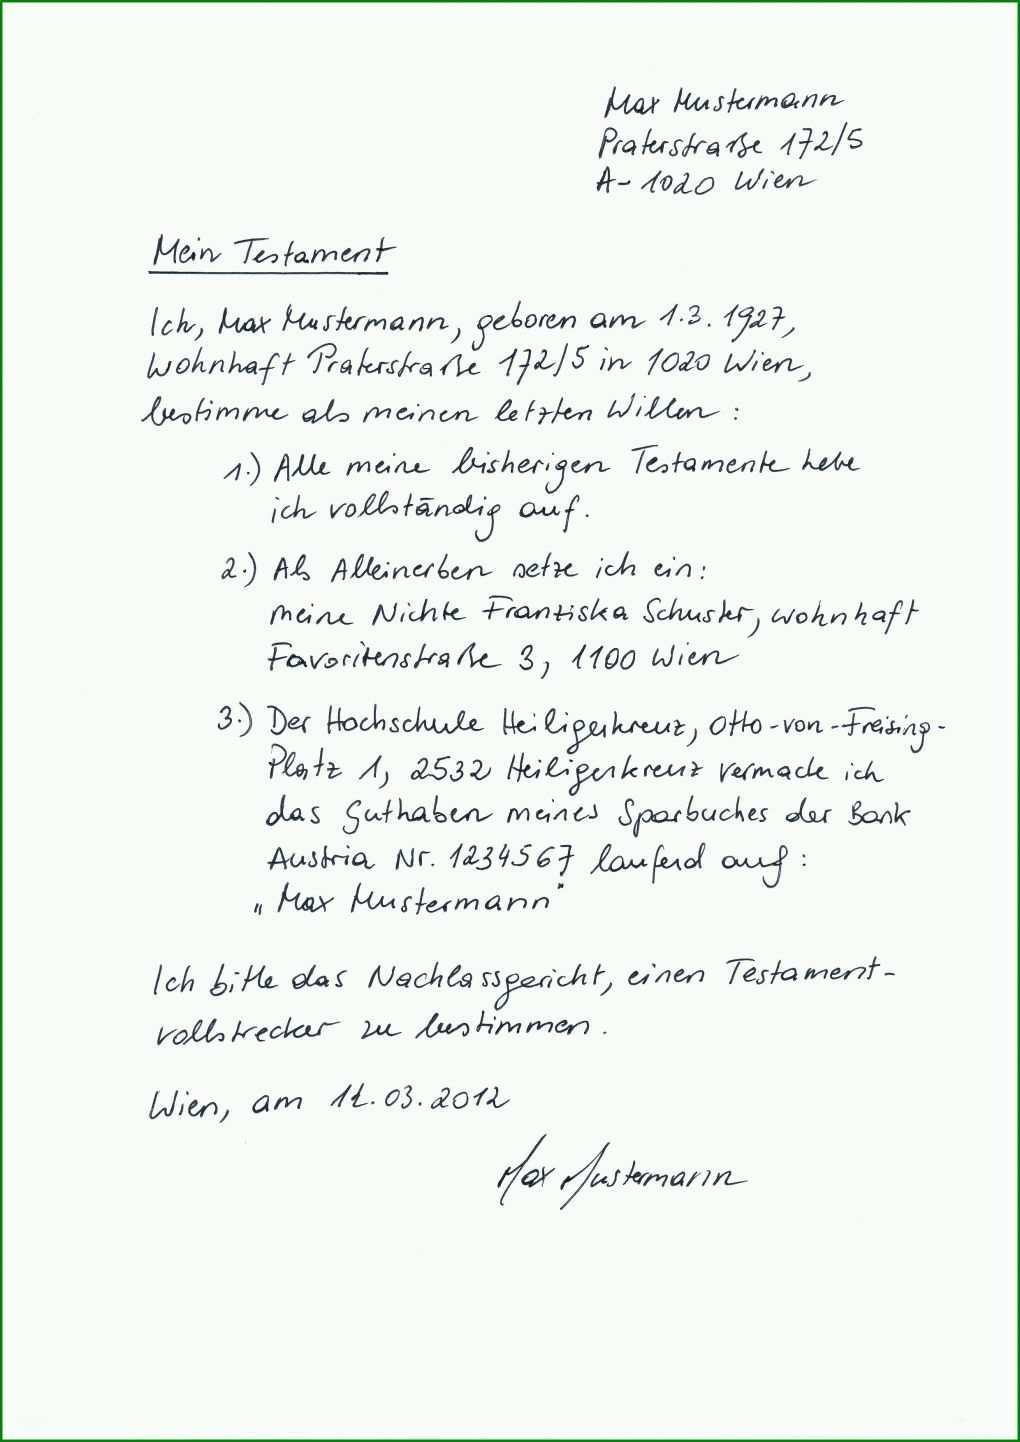 Max Mustermann
Praterstraße 172/5
A-1020 Wien
Mein Testament
Ich, Max Mustermann, geboren am 1.3.1927,
wohnhaft Praterstraße 172/5 in 1020 Wien,
bestimme als meinen letzten Willen:
1.) Alle meine bisherigen Testamente hebe
ich vollständig auf.
2.) Als Alleinerben setze ich ein:
meine Nichte Franziska Schuster, wohnhaft
Favoritenstraße 3, 1100 Wien
3.) Der Hochschule Heiligenkreuz, Otto-von-Freising-
Platz 1, 2532 Heiligenkreuz vermache ich
das Guthaben meines Sparbuches der Bank
Austria Nr. 1234567 lautend auf:
„Max Mustermann"
Ich bitte das Nachlassgericht, einen Testament-
vollstrecker zu bestimmen.
Wien, am 11.03.2012
Max Mustermann